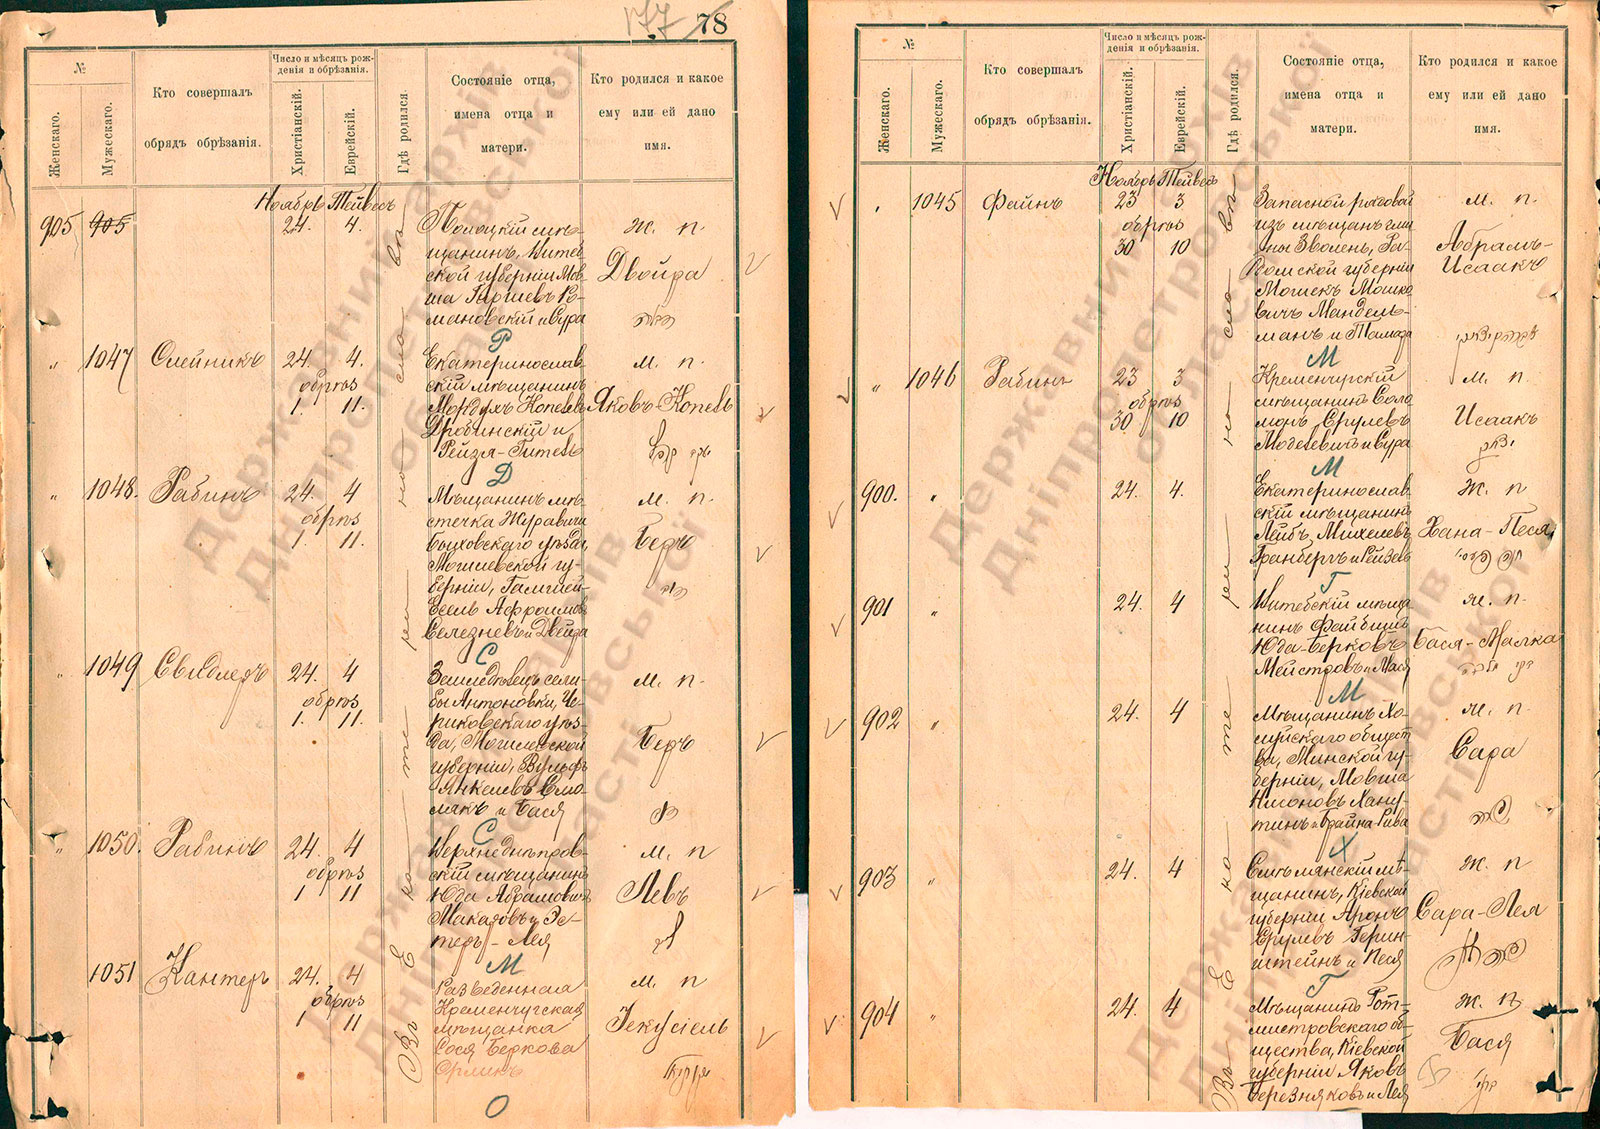 177 78
№
Женскаго.
Мужескаго.
Кто совершалъ
обрядъ обрѣзанія.
Число и мѣсяцъ рож-
денія и обрѣзанія.
Христіанскій.
Еврейскій.
Гдѣ родился.
Состояніе отца,
имена отца и
матери.
Кто родился и какое
ему или ей дано
имя.
Ноябрь Тейвесъ
905 905 24. 4.
Полоцкій мѣ-
щанинъ, Витеб-
ской губерніи Мов-
ша Гиршевъ Ро-
мановскій и Сура
Ж. п.
Двойра
Р
" 1047 Олейникъ 24. 4.
обрѣз
1. 11.
Екатеринослав-
скій мѣщанинъ
Мордухъ Копелевъ
Дробинскій и
Рейзя-Гитель
м. п.
Яковъ-Копель
Д
" 1048. Рабинъ 24. 4
обрѣз
1. 11.
Мѣщанинъ мѣ-
стечка Журавичи
Быховскаго уѣзда,
Могилевской гу-
берніи,
Селезневъ и Двейра
м. п.
Беръ
С
" 1049 24. 4
обрѣз
1. 11.
Земледѣлецъ сели-
бы Антоновки, Че-
риковскаго уѣз-
да, Могилевской
губерніи, Вульфъ
Янкелевъ Смо-
лякъ и Бася
м. п.
Беръ
С
" 1050. Рабинъ 24. 4
обрѣз
1 11
Верхнеднѣпров-
скій мѣщанинъ
Юда Абрамовичъ
Макаровъ и Эс-
теръ-Лея
м. п
Левъ
М
1051 Кантеръ 24. 4
обрѣз
1 11
Разведенная
Кременчугская
мѣщанка
Сося Беркова
Орликъ
м. п.
Іекусіель
О
Въ Е ка те ри но сла въ
№
Женскаго.
Мужескаго.
Кто совершалъ
обрядъ обрѣзанія.
Число и мѣсяцъ рож-
денія и обрѣзанія.
Христіанскій.
Еврейскій.
Гдѣ родился.
Состояніе отца,
имена отца и
матери.
Кто родился и какое
ему или ей дано
имя.
Ноябрь Тейвесъ
1045 Файнъ 23 3
обрѣз
30 10
Запасной рядовой
изъ мѣщанъ гми-
ны Зволень, Ра-
домской губерніи
Мошекъ Мошко-
вичъ Мандель-
манъ и Тамара
м. п.
Абрамъ-
Исаакъ
М
" 1046 Рабинъ 23 3
обрѣз
30 10
Кременчугскій
мѣщанинъ Соло-
монъ Сруlевъ
и Сура
м. п.
Исаакъ
М
900. " 24. 4.
Екатеринослав-
скій мѣщанинъ
Лейбъ Михелевъ
Гранбергъ и Рейзель
Ж. п
Хана-Песя
Г
901 " 24. 4
Витебскій мѣща-
нинъ Файбишъ
Юда-Берковъ
Мейстровъ и Мася
ж. п.
Бася-Малка
М
902 " 24. 4
Мѣщанинъ Хо-
луйскаго общест-
ва, Минской гу-
берніи, Мовша
Нисоновъ Хану-
тинъ и Фрайна-Рива
ж. п.
Сара
Х
903 " 24. 4
Смѣлянскій мѣ-
щанинъ, Кіевской
губерніи Аронъ
Срулевъ Герин-
штейнъ и Песя
Ж. п
Сара-Лея
Г
904 " 24. 4
Мѣщанинъ Рот-
мистровскаго об-
щества, Кіевской
губерніи Яковъ
Березняковъ и Лея
Ж. п
Бася
Б
Въ Е ка те ри но сла въ
Державний архів
Дніпропетровської
області